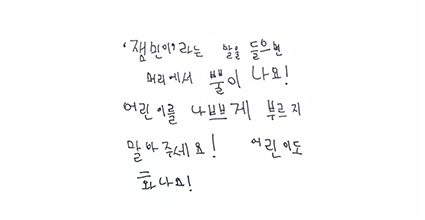 '잼민이'라는 말을 들으면
머리에서 뿔이 나요!
어린이를 나쁘게 부르지
말아주세요! 어린이도
화나요!